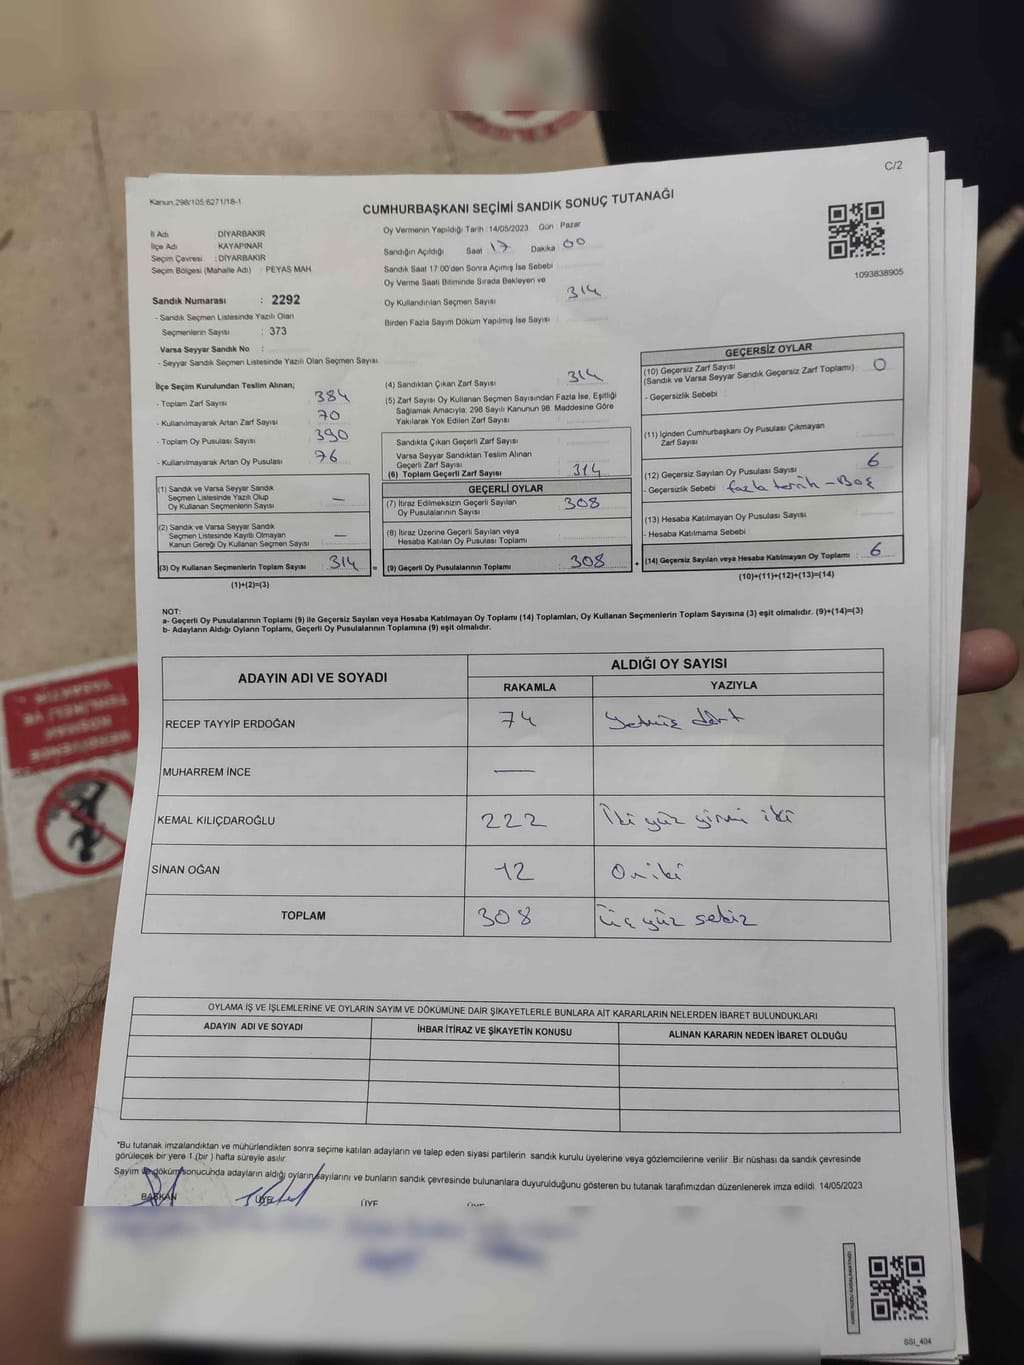 C/2
Kanun.298/105,6271/18-1
CUMHURBAŞKANI SEÇİMİ SANDIK SONUÇ TUTANAĞI
İl Adı DİYARBAKIR
İlçe Adı : KAYAPINAR
Seçim Çevresi : DİYARBAKIR
Seçim Bölgesi (Mahalle Adı) : PEYAS MAH
Sandık Numarası : 2292
- Sandık Seçmen Listesinde Yazılı Olan
Seçmenlerin Sayısı : 373
Varsa Seyyar Sandık No :
- Seyyar Sandık Seçmen Listesinde Yazılı Olan Seçmen Sayısı
Oy Vermenin Yapıldığı Tarih : 14/05/2023 Gün Pazar
Sandığın Açıldığı Saat 17 Dakika 00
Sandık Saat 17:00'den Sonra Açımış İse Sebebi
Oy Verme Saati Bitiminde Sırada Bekleyen ve
Oy Kullandırılan Seçmen Sayısı 314
Birden Fazla Sayım Döküm Yapılmış İse Sayısı
1093838905
İlçe Seçim Kurulundan Teslim Alınan;
- Toplam Zarf Sayısı 384
- Kullanılmayarak Artan Zarf Sayısı 70
- Toplam Oy Pusulası Sayısı 390
- Kullanılmayarak Artan Oy Pusulası 76
(1) Sandık ve Varsa Seyyar Sandık
Seçmen Listesinde Yazılı Olup
Oy Kullanan Seçmenlerin Sayısı —
(2) Sandık ve Varsa Seyyar Sandık
Seçmen Listesinde Kayıtlı Olmayan
Kanun Gereği Oy Kullanan Seçmen Sayısı —
(3) Oy Kullanan Seçmenlerin Toplam Sayısı 314
(1)+(2)=(3)
(4) Sandıktan Çıkan Zarf Sayısı 314
(5) Zarf Sayısı Oy Kullanan Seçmen Sayısından Fazla İse, Eşitliği
Sağlamak Amacıyla, 298 Sayılı Kanunun 98. Maddesine Göre
Yakılarak Yok Edilen Zarf Sayısı
Sandıkta Çıkan Geçerli Zarf Sayısı
Varsa Seyyar Sandıktan Teslim Alınan
Geçerli Zarf Sayısı
(6) Toplam Geçerli Zarf Sayısı 314
GEÇERLİ OYLAR
(7) İtiraz Edilmeksizin Geçerli Sayılan
Oy Pusulalarının Sayısı 308
(8) İtiraz Üzerine Geçerli Sayılan veya
Hesaba Katılan Oy Pusulası Toplamı
= (9) Geçerli Oy Pusulalarının Toplamı 308
GEÇERSİZ OYLAR
(10) Geçersiz Zarf Sayısı
(Sandık ve Varsa Seyyar Sandık Geçersiz Zarf Toplamı) 0
- Geçersizlik Sebebi
(11) İçinden Cumhurbaşkanı Oy Pusulası Çıkmayan
Zarf Sayısı
(12) Geçersiz Sayılan Oy Pusulası Sayısı 6
- Geçersizlik Sebebi fazla tercih - Boş
(13) Hesaba Katılmayan Oy Pusulası Sayısı
- Hesaba Katılmama Sebebi
+ (14) Geçersiz Sayılan veya Hesaba Katılmayan Oy Toplamı 6
(10)+(11)+(12)+(13)=(14)
NOT:
a- Geçerli Oy Pusulalarının Toplamı (9) ile Geçersiz Sayılan veya Hesaba Katılmayan Oy Toplamı (14) Toplamları, Oy Kullanan Seçmenlerin Toplam Sayısına (3) eşit olmalıdır. (9)+(14)=(3)
b- Adayların Aldığı Oyların Toplamı, Geçerli Oy Pusulalarının Toplamına (9) eşit olmalıdır.
ADAYIN ADI VE SOYADI ALDIĞI OY SAYISI
RAKAMLA YAZIYLA
RECEP TAYYİP ERDOĞAN 74 Yetmiş dört
MUHARREM İNCE —
KEMAL KILIÇDAROĞLU 222 İki yüz yirmi iki
SİNAN OĞAN 12 On iki
TOPLAM 308 Üç yüz sekiz
OYLAMA İŞ VE İŞLEMLERİNE VE OYLARIN SAYIM VE DÖKÜMÜNE DAİR ŞİKAYETLERLE BUNLARA AİT KARARLARIN NELERDEN İBARET BULUNDUKLARI
ADAYIN ADI VE SOYADI İHBAR İTİRAZ VE ŞİKAYETİN KONUSU ALINAN KARARIN NEDEN İBARET OLDUĞU
*Bu tutanak imzalandıktan ve mühürlendikten sonra seçime katılan adayların ve talep eden siyasi partilerin sandık kurulu üyelerine veya gözlemcilerine verilir .Bir nüshası da sandık çevresinde
görülecek bir yere 1 (bir ) hafta süreyle asılır.
Sayım ve döküm sonucunda adayların aldığı oyların sayılarını ve bunların sandık çevresinde bulunanlara duyurulduğunu gösteren bu tutanak tarafımızdan düzenlenerek imza edildi. 14/05/2023
BAŞKAN ÜYE ÜYE ÜYE
SSI_404